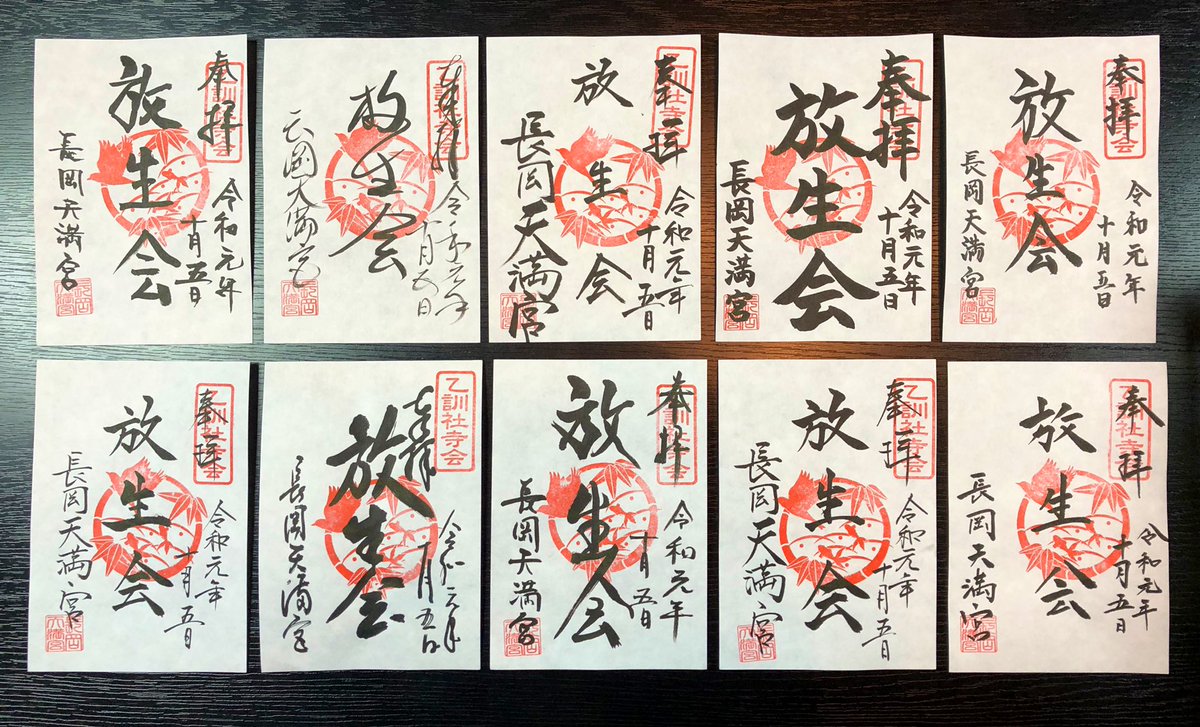 奉拝
乙訓社寺会
令和元年
十月五日
放生会
長岡天満宮
奉拝
乙訓社寺会
令和元年
十月五日
放生会
長岡天満宮
奉拝
乙訓社寺会
令和元年
十月五日
放生会
長岡天満宮
奉拝
乙訓社寺会
令和元年
十月五日
放生会
長岡天満宮
奉拝
乙訓社寺会
令和元年
十月五日
放生会
長岡天満宮
奉拝
乙訓社寺会
令和元年
十月五日
放生会
長岡天満宮
奉拝
乙訓社寺会
令和元年
十月五日
放生会
長岡天満宮
奉拝
乙訓社寺会
令和元年
十月五日
放生会
長岡天満宮
奉拝
乙訓社寺会
令和元年
十月五日
放生会
長岡天満宮
奉拝
乙訓社寺会
令和元年
十月五日
放生会
長岡天満宮